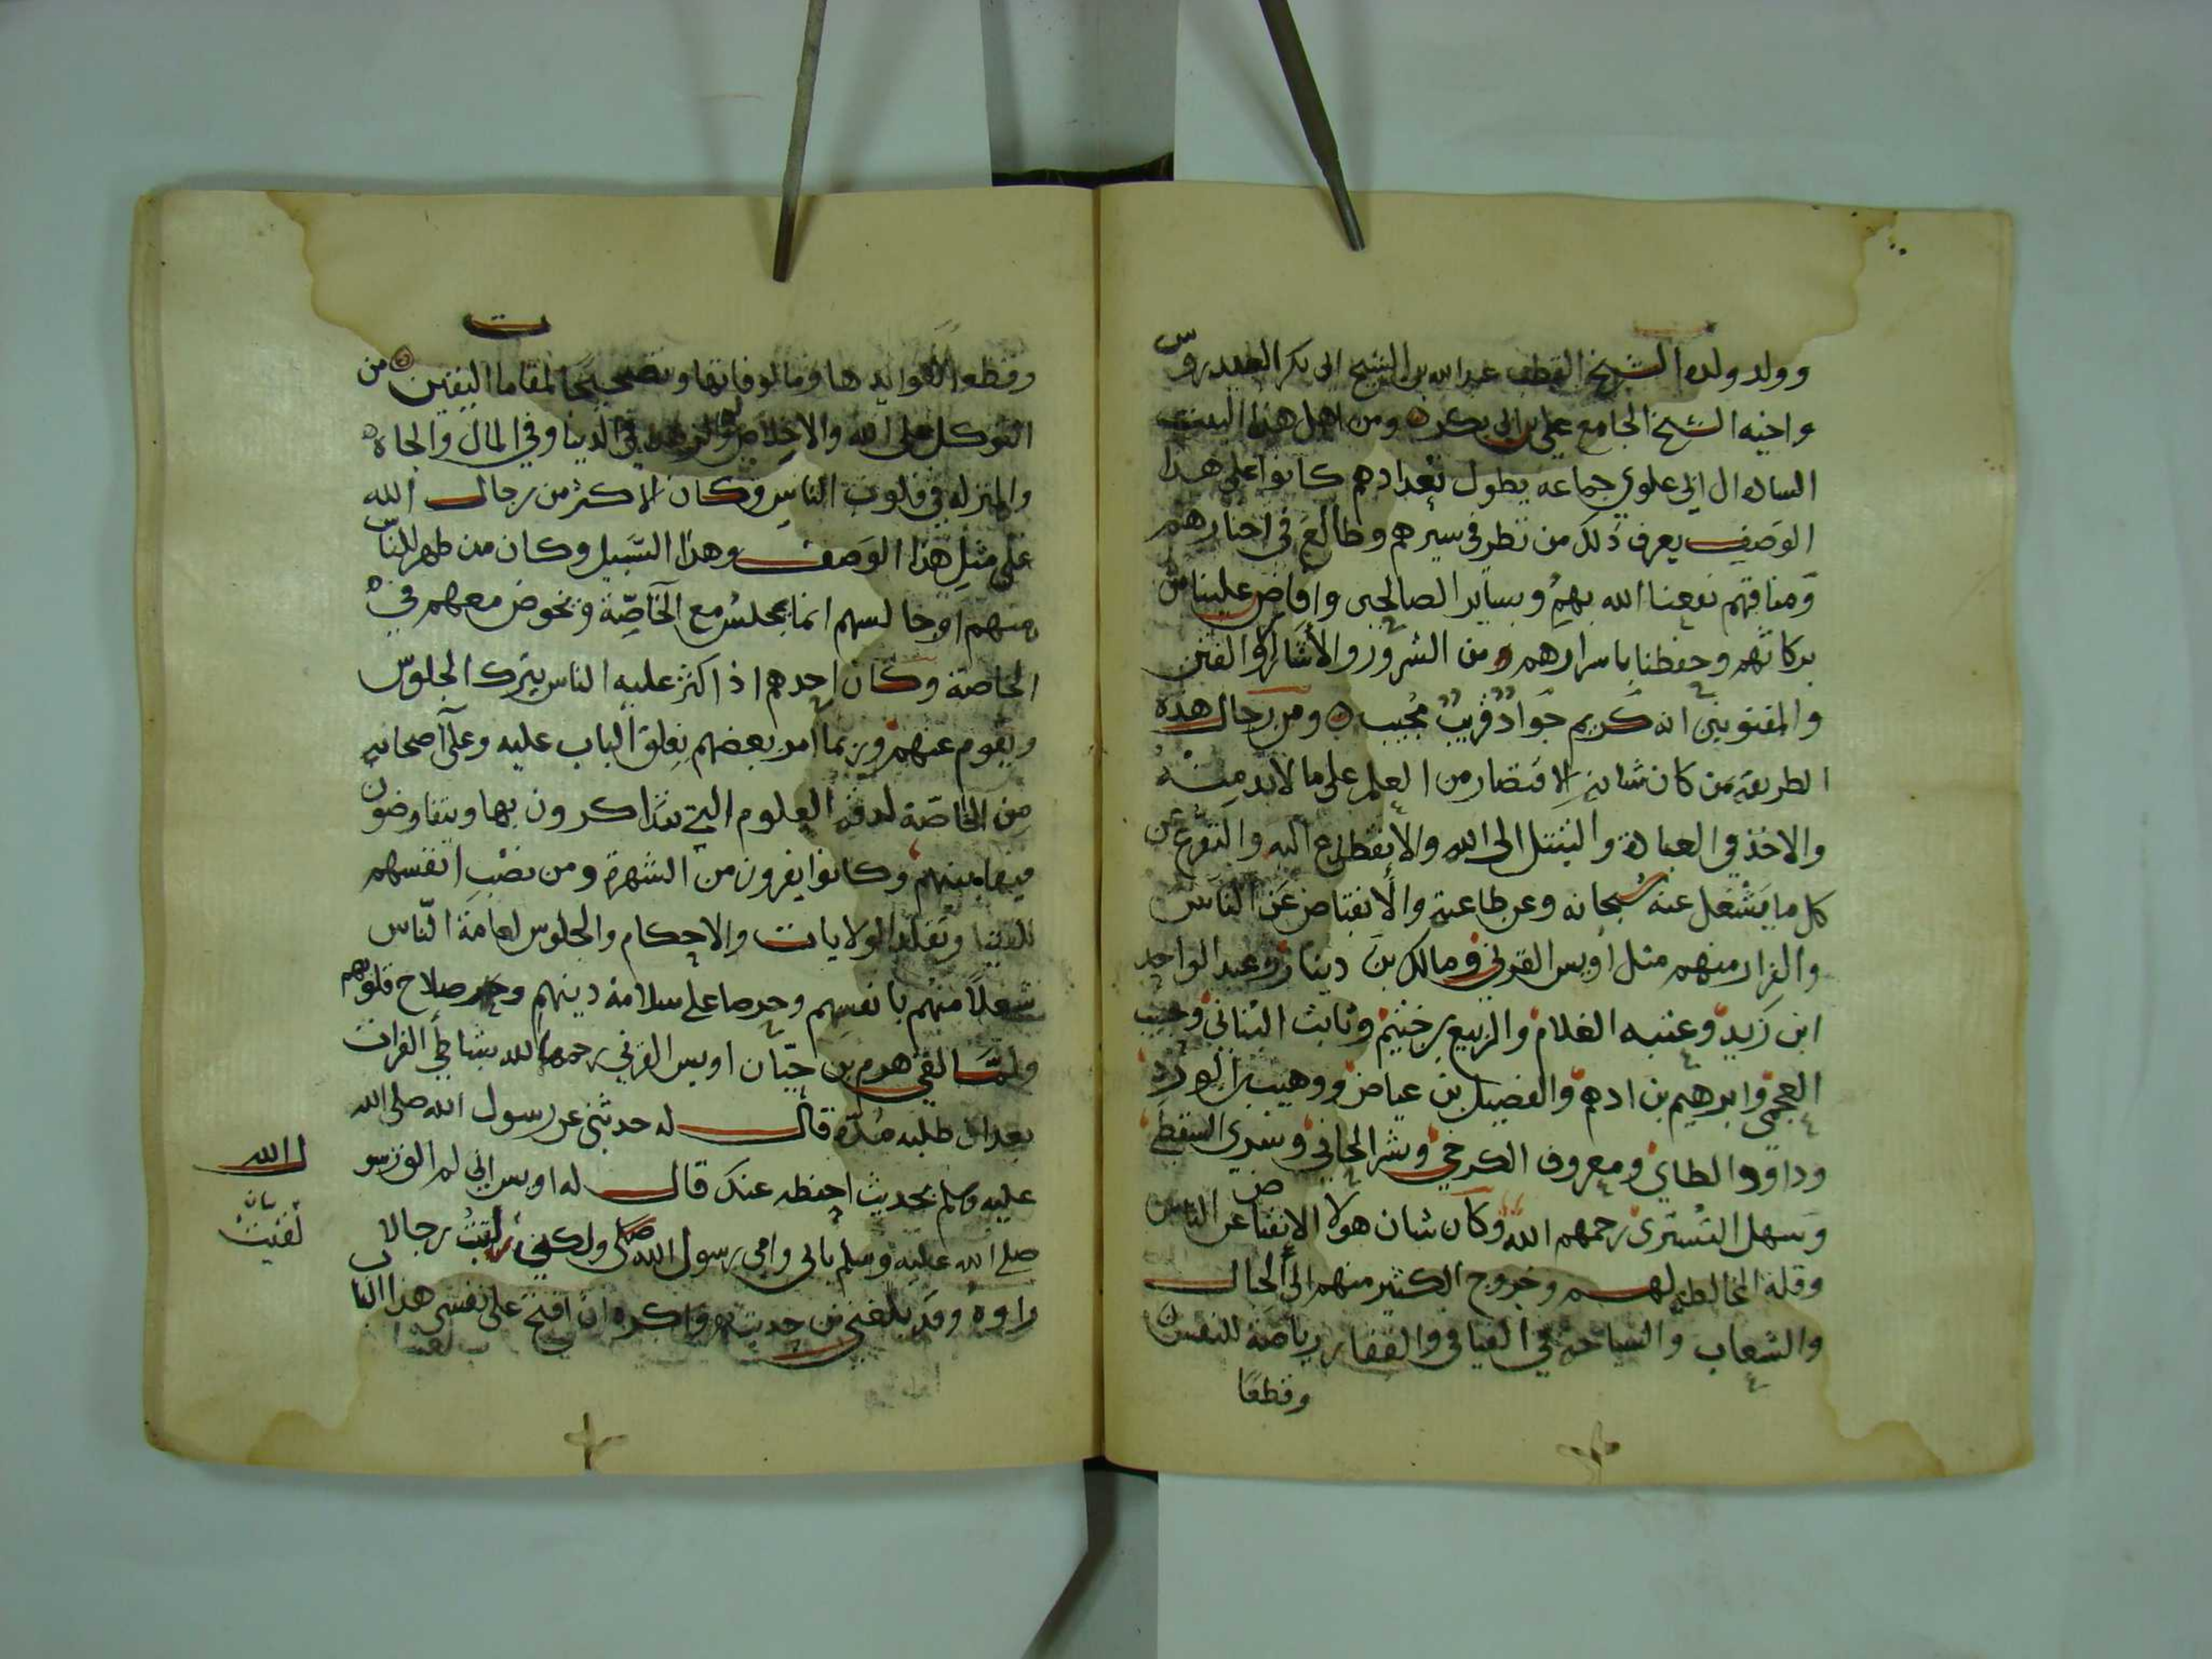 وولد ولده الشيخ القطب عبدالله بن الشيخ ابي بكر العيدروس
واخيه الشيخ الجامع علي بن ابي بكر ومن اهل هذا البيت
الساده ال ابي علوي جماعه يطول تعدادهم كانوا على هذا
الوصف يعرف ذلك من نظر في سيرهم وطالع في اخبارهم
ومناقبهم نفعنا الله بهم وبساير الصالحين وافاض علينا من
بركاتهم وحفظنا باسرارهم من الشرور والأشرار والفتن
والمفتونين انه كريم جواد قريب مجيب ومن رجال هذه
الطريقه من كان شانه الاقتصار من العلم على ما لابد منه
والاخذ في العبادة والتبتل الى الله والانقطاع اليه والتفرغ عن
كل ما يشغل عنه سبحانه وعن طاعته والانقباض عن الناس
والفرار منهم مثل اويس القرني ومالك بن دينار وعبد الواحد
ابن زيد وعتبه الغلام والربيع بن خثيم وثابت البناني وحبيب
العجمي وابرهيم بن ادهم والفضيل بن عياض ووهيب بن الورد
وداوود الطاي ومعروف الكرخي وبشر الحافي وسري السقطي
وسهل التستري رحمهم الله وكان شان هولا الانقباض عن الناس
وقلة المخالطه لهم وخروج الكثير منهم الى الجبال
والشعاب والسياحة في الفيافي والقفار رياضة للنفس
وقطعا
وقطعا لعوايدها ومالوفاتها وتصحيحا لمقامات اليقين من
التوكل على الله والاخلاص له والزهد في الدنيا وفي المال والجاه
والمنزله في قلوب الناس وكان الاكثر من رجال الله
على مثل هذا الوصف وهذا السبيل وكان من ظهر للناس
منهم اوجالسهم انما يجلس مع الخاصّة ويخوض معهم في
الخاصة وكان احدهم اذا كثر عليه الناس يترك الجلوس
ويقوم عنهم وربما امر بعضهم بغلق الباب عليه وعلى اصحابه
من الخاصّة لدقة العلوم التي يتذاكرون بها ويتفاوضون
فيها بينهم وكانوا يفرون من الشهرة ومن نصب انفسهم
للفتيا وتقلد الولايات والاحكام والجلوس لعامة الناس
شغلا منهم بانفسهم وحرصا على سلامة دينهم وصلاح قلوبهم
ولما لقي هرم بن حيّان اويس القرني رحمهما الله بشاطي الفرات
بعد ان طلبه مدّة قال له حدثني عن رسول الله صلى الله
عليه وسلم بحديث احفظه عنك قال له اويس اني لم الق رسو
ل الله
صلى الله عليه وسلم بابي وامي رسول الله ولكني لقيت رجالا
بيان
لقيت
راوه وقد بلغني من حديثه واكره ان افتح على نفسي هذا البا